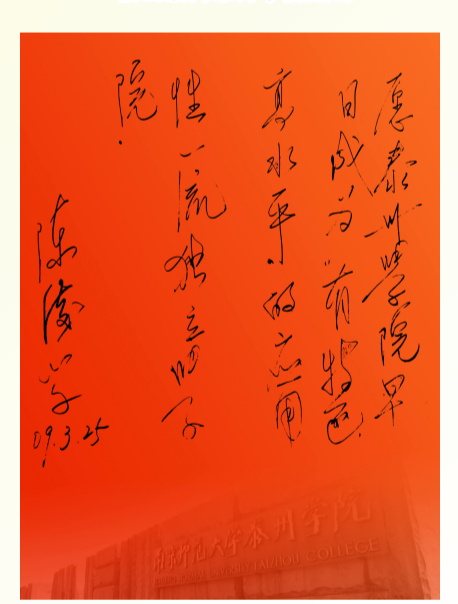 愿泰州學院早
日成为“有特色、
高水平”的应用
性一流独立学
院.
陈凌孚
09.3.25
南京师范大学泰州学院
TAIZHOU COLLEGE